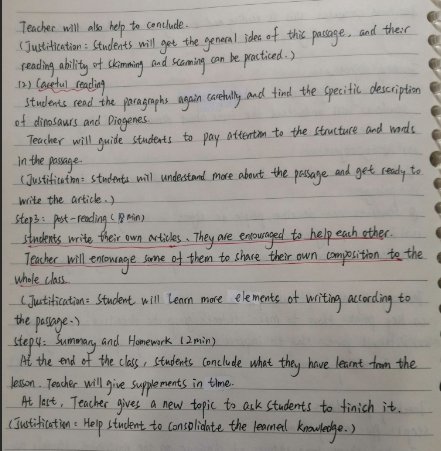 Teacher will also help to conclude.
(Justification: Students will get the general idea of this passage, and their
reading ability of skimming and scanning can be practiced.)
(2) Careful reading
Students read the paragraphs again carefully and find the specific description
of dinosaurs and Diogenes
Teacher will guide students to pay attention to the structure and words
in the passage.
(Justification: students will understand more about the passage and get ready to
write the article.)
Step3: post-reading (min)
Students write their own articles. They are encouraged to help each other.
Teacher will encourage some of them to share their own composition to the
whole class.
(Justification: Student will learn more elements of writing according to
the passage.)
Step4: Summary and Homework (2min)
At the end of the class, students conclude what they have learnt from the
lesson. Teacher will give supplements in time.
At last, Teacher gives a new topic to ask students to finish it.
(Justification: Help student to consolidate the learned knowledge.)